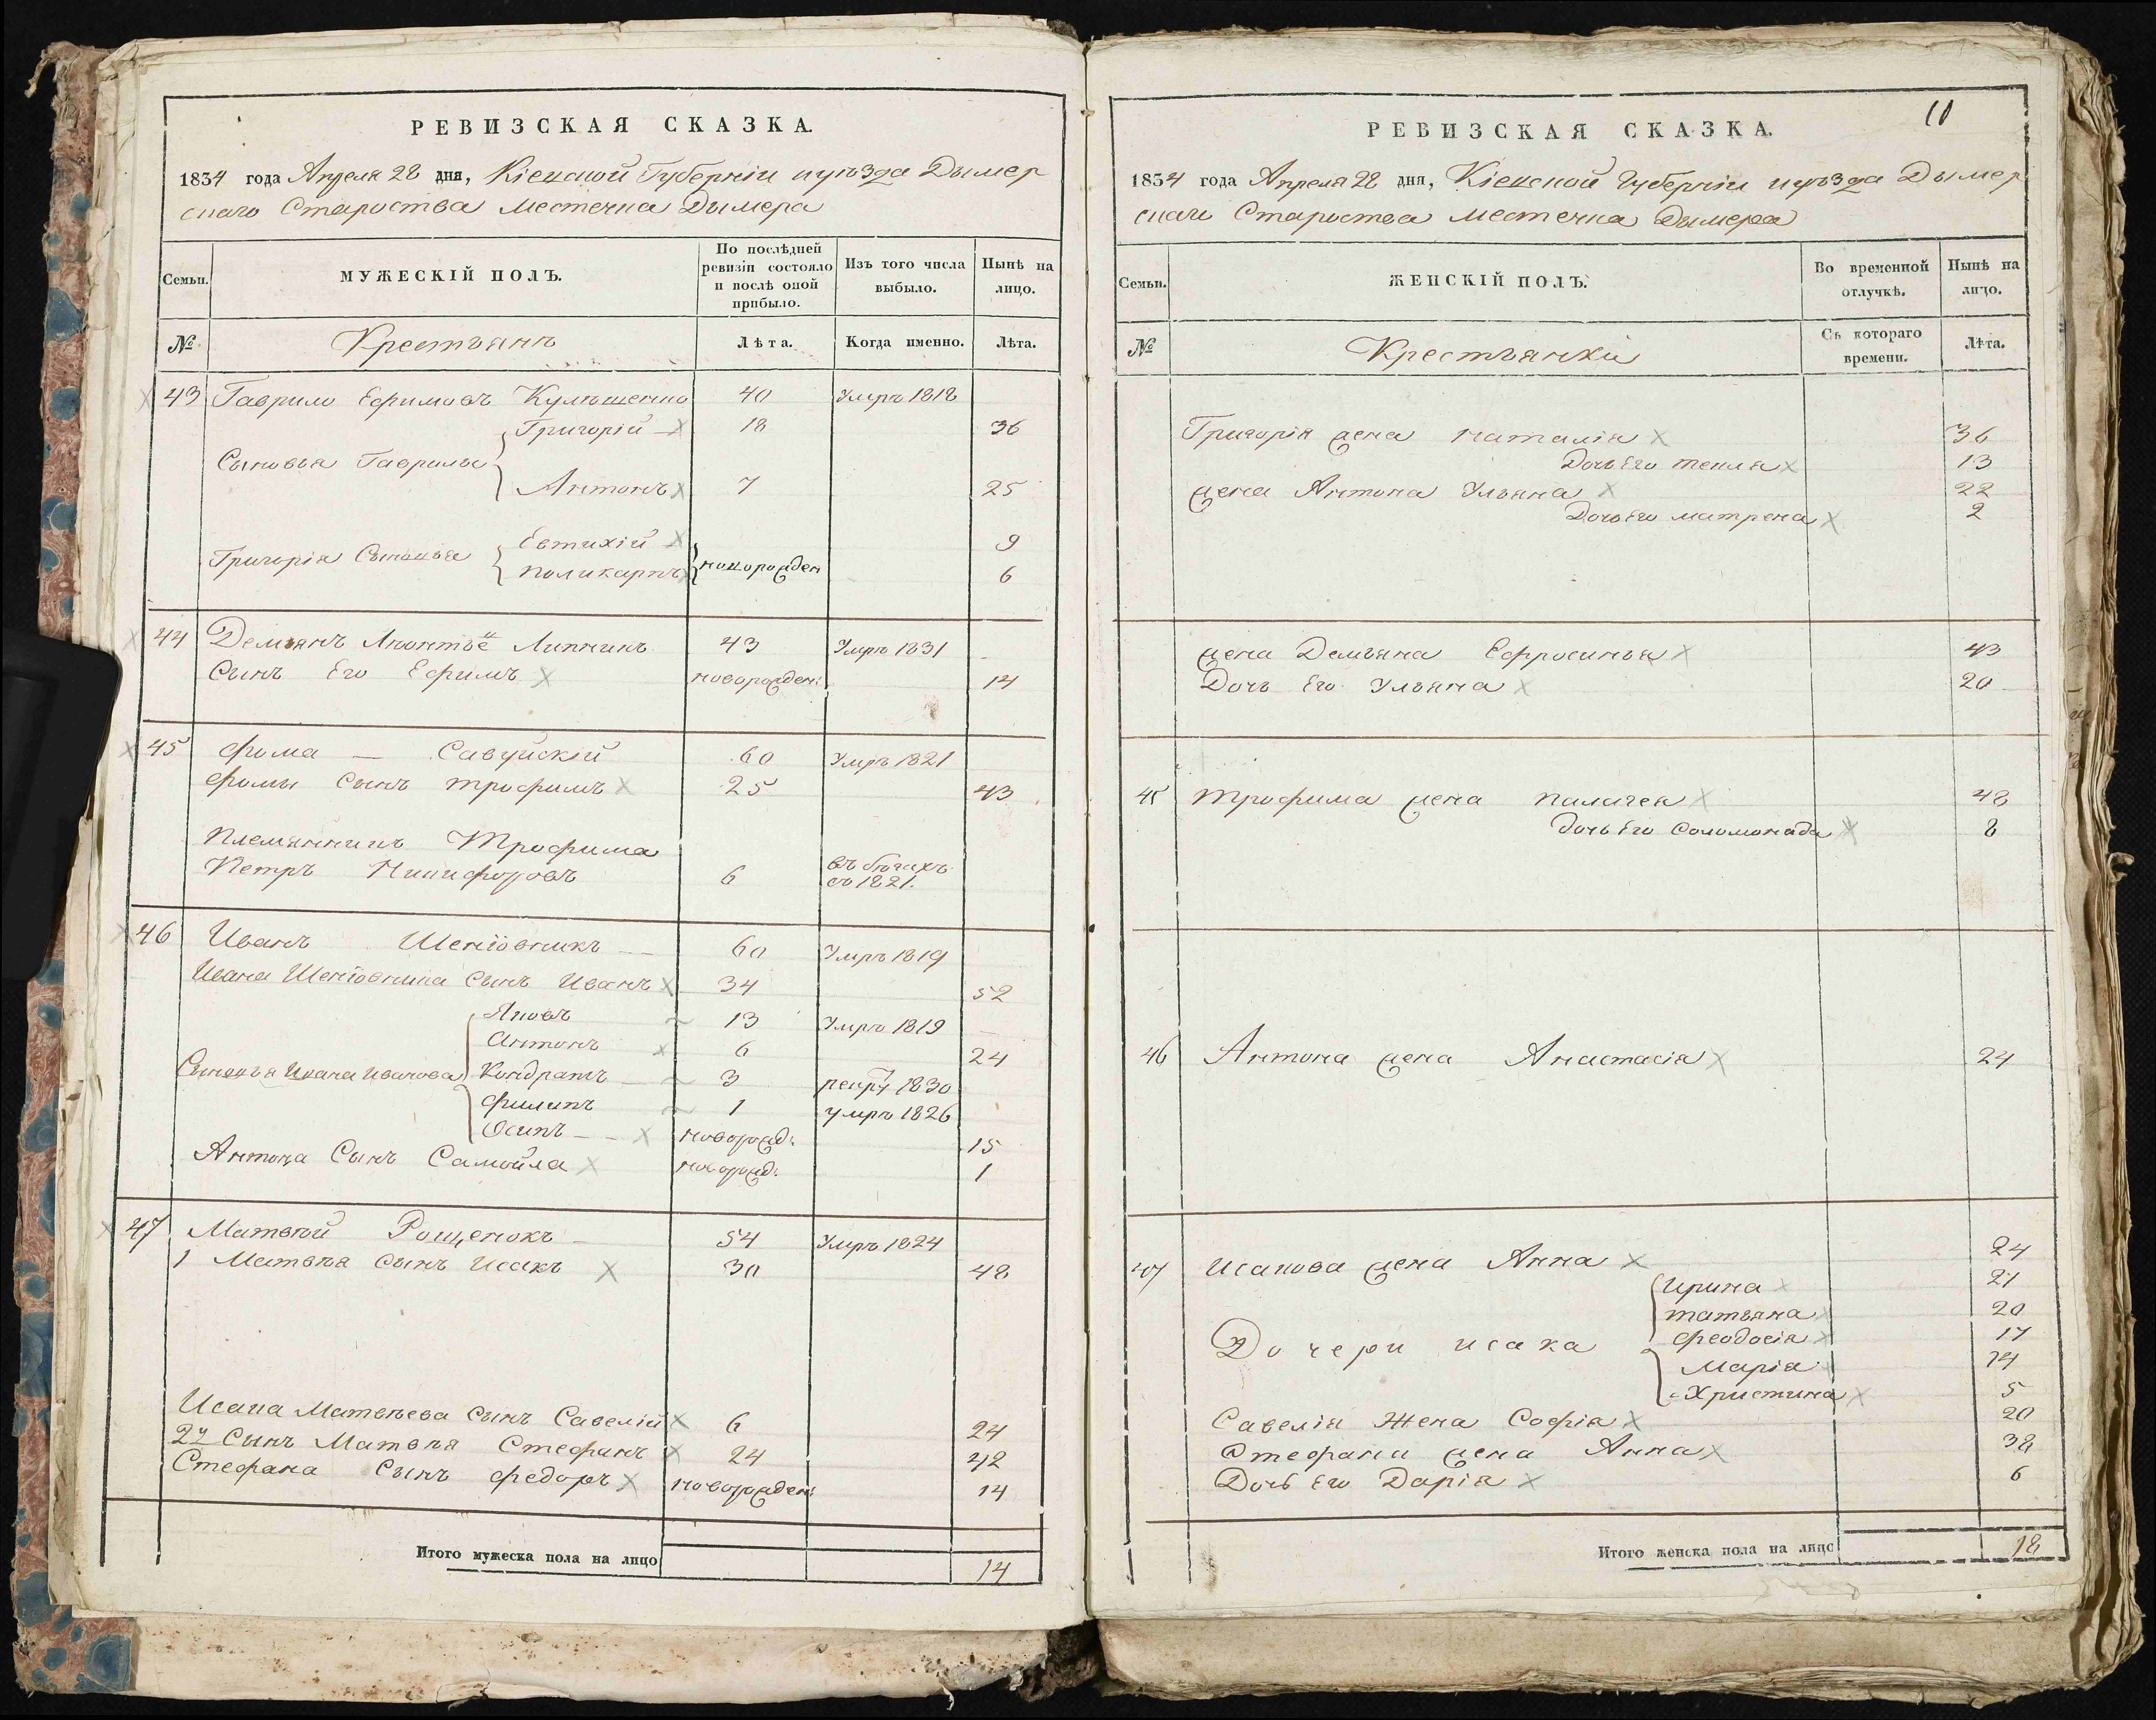 РЕВИЗСКАЯ СКАЗКА.
1834 года Апреля 28 дня, Кіевской Губерніи и уѣзда Дымер
скаго Староства Местечка Дымера
Семьи.
МУЖЕСКІЙ ПОЛЪ.
По послѣдней ревизіи состояло и послѣ оной прибыло.
Изъ того числа выбыло.
Нынѣ на лицо.
№
Крестьянъ
Лѣта.
Когда именно.
Лѣта.
43 Гаврило Ефимовъ 40 Умръ 1818
Григорій 18 36
Сыновья Гаврилы
Антонъ 7 25
Евтихій 9
Григорія Сыновья новорожден
Поликарпъ 6
44 Демьянъ Липникъ 43 Умръ 1831
Сынъ Его Ефимъ новорожден: 14
45 Фома — Савуйскій 60 Умръ 1821
Фомы Сынъ Трофимъ 25 43
Племянникъ Трофима
Петръ Никифоровъ 6 въ бѣгахъ съ 1821.
46 Иванъ 60 Умръ 1819
Ивана Сынъ Иванъ 34 52
Яковъ 13 Умръ 1819
Антонъ 6 24
Сыновья Ивана Иванова Кондратъ 3 рекрут 1830
Филипъ 1 умръ 1826
Осипъ новорожд: 15
Антона Сынъ Самойла новорожд: 1
47 Матвѣй Рощенокъ 54 Умръ 1824
1 Матвѣя Сынъ Исакъ 30 48
Исака Матвѣева Сынъ Савелій 6 24
2й Сынъ Матвѣя Стефанъ 24 42
Стефана Сынъ Федоръ новорожден: 14
Итого мужеска пола на лицо 14
10
РЕВИЗСКАЯ СКАЗКА.
1834 года Апреля 28 дня, Кіевской Губерніи и уѣзда Дымер
скаго Староства Местечка Дымера
Семьи.
ЖЕНСКІЙ ПОЛЪ.
Во временной отлучкѣ.
Нынѣ на лицо.
№
Крестьянки
Съ котораго времени.
Лѣта.
Григорія жена Наталія 36
Дочь Его Текля 13
жена Антона Ульяна 22
Дочь Его Матрена 2
жена Демьяна Ефросинья 43
Дочь Его Ульяна 20
45 Трофима жена Палагея 48
Дочь Его Соломонида 8
46 Антона жена Анастасія 24
47 Исакова жена Анна 24
Ирина 21
Татьяна 20
Дочери Исака Феодосія 17
Марія 14
Христина 5
Савелія Жена Софія 20
Стефана жена Анна 38
Дочь Его Дарія 6
Итого женска пола на лицо 18